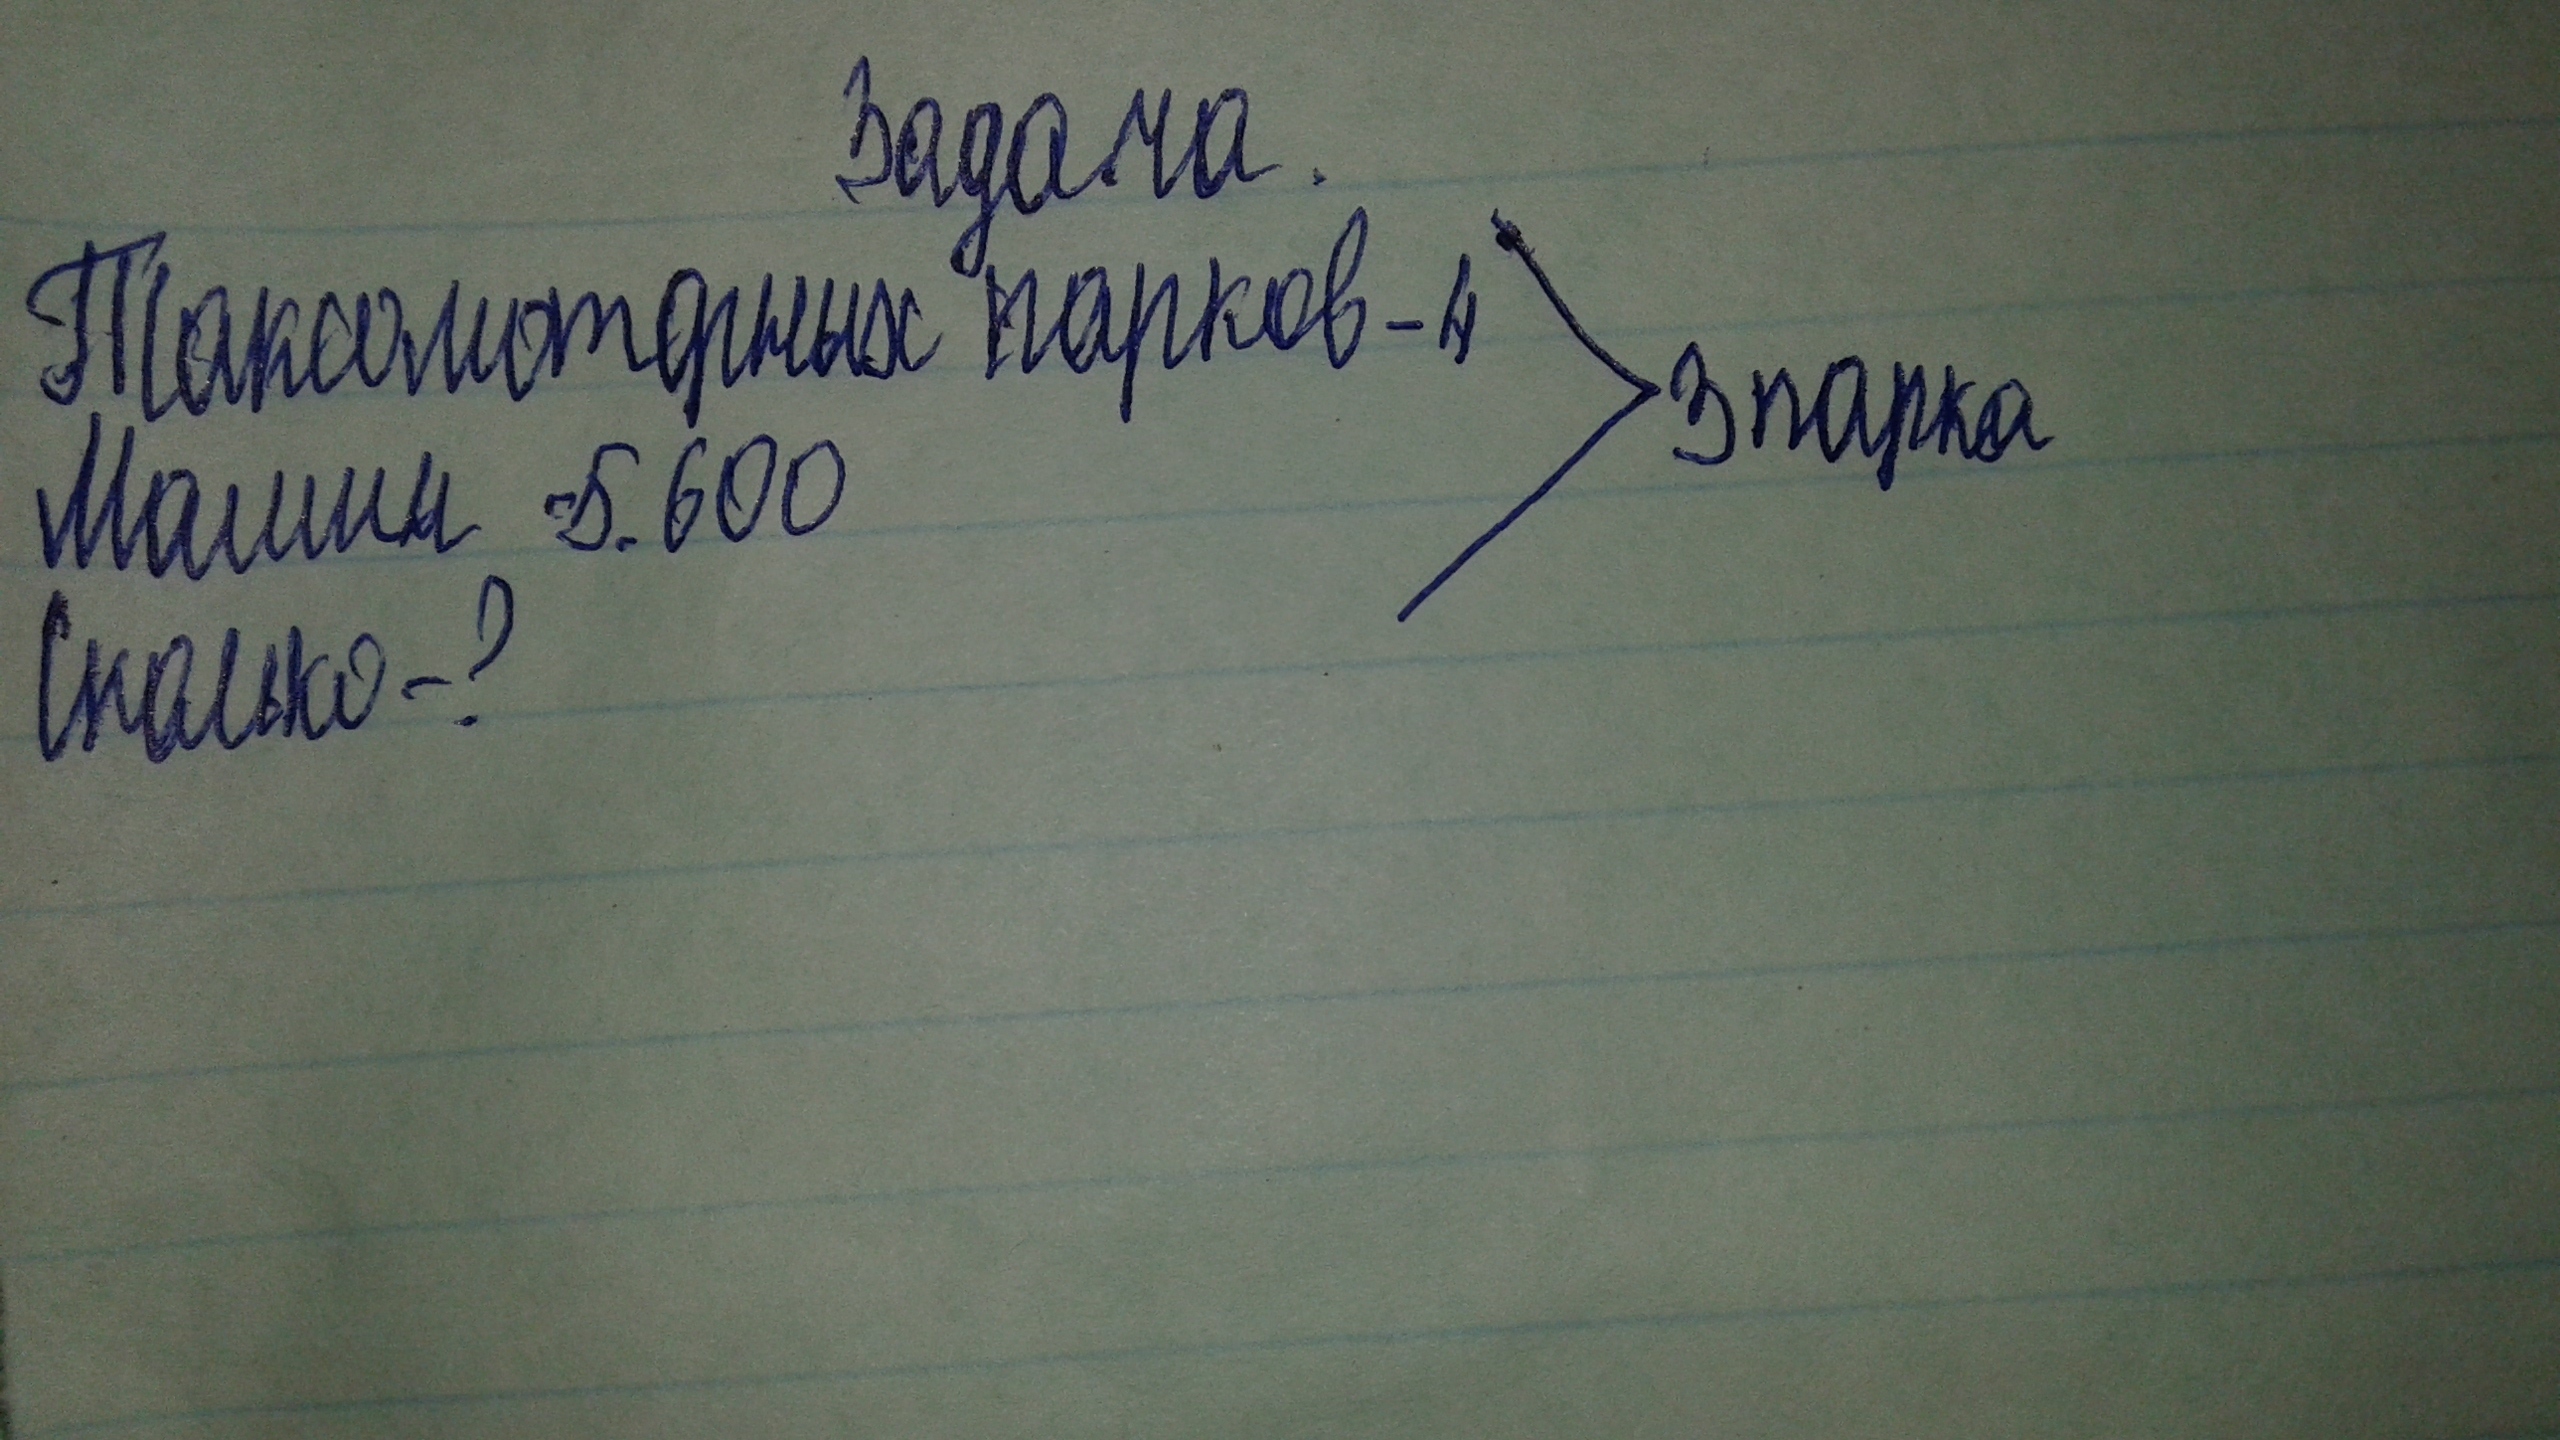 Задача.
Таксомоторных парков - 4
3 парка
Машин - 5.600
Сколько - ?